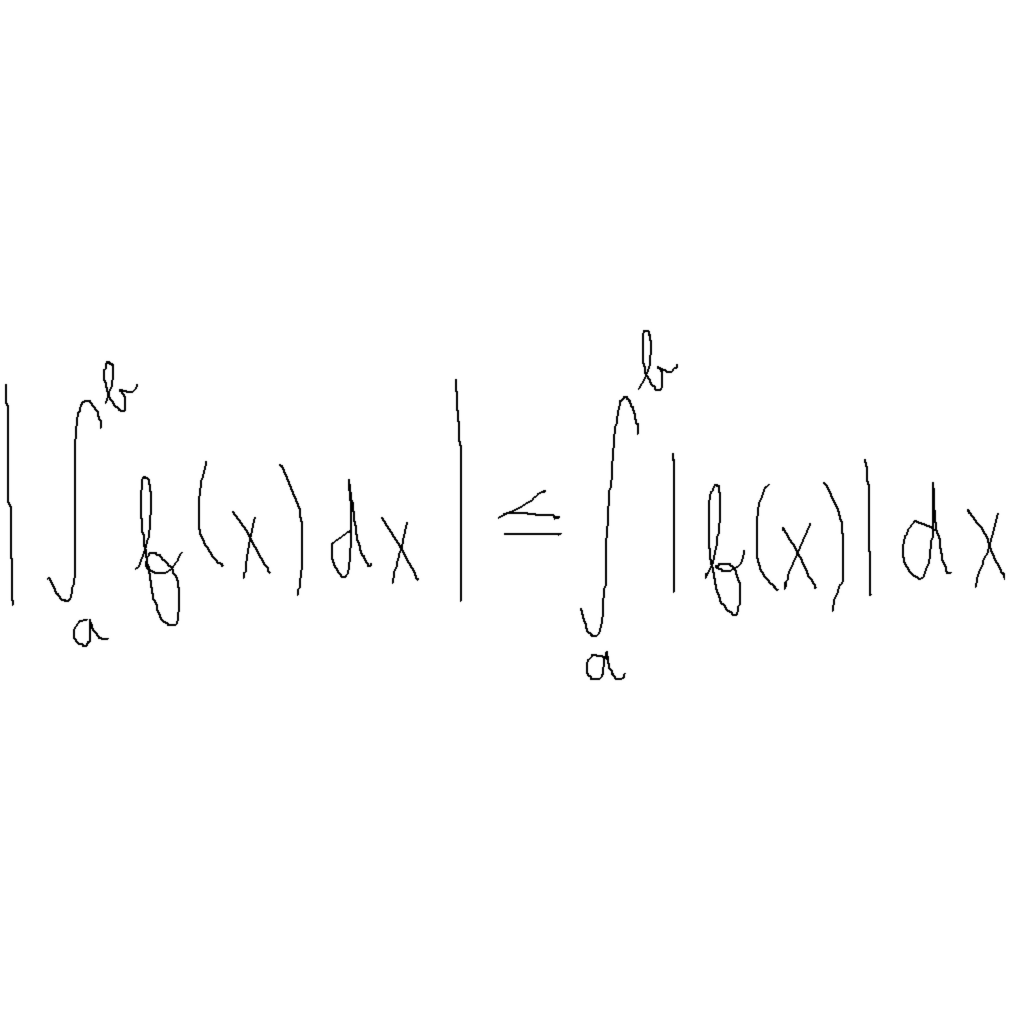 $\left| \int_{a}^{b} f(x) dx \right| \leq \int_{a}^{b} |f(x)| dx$